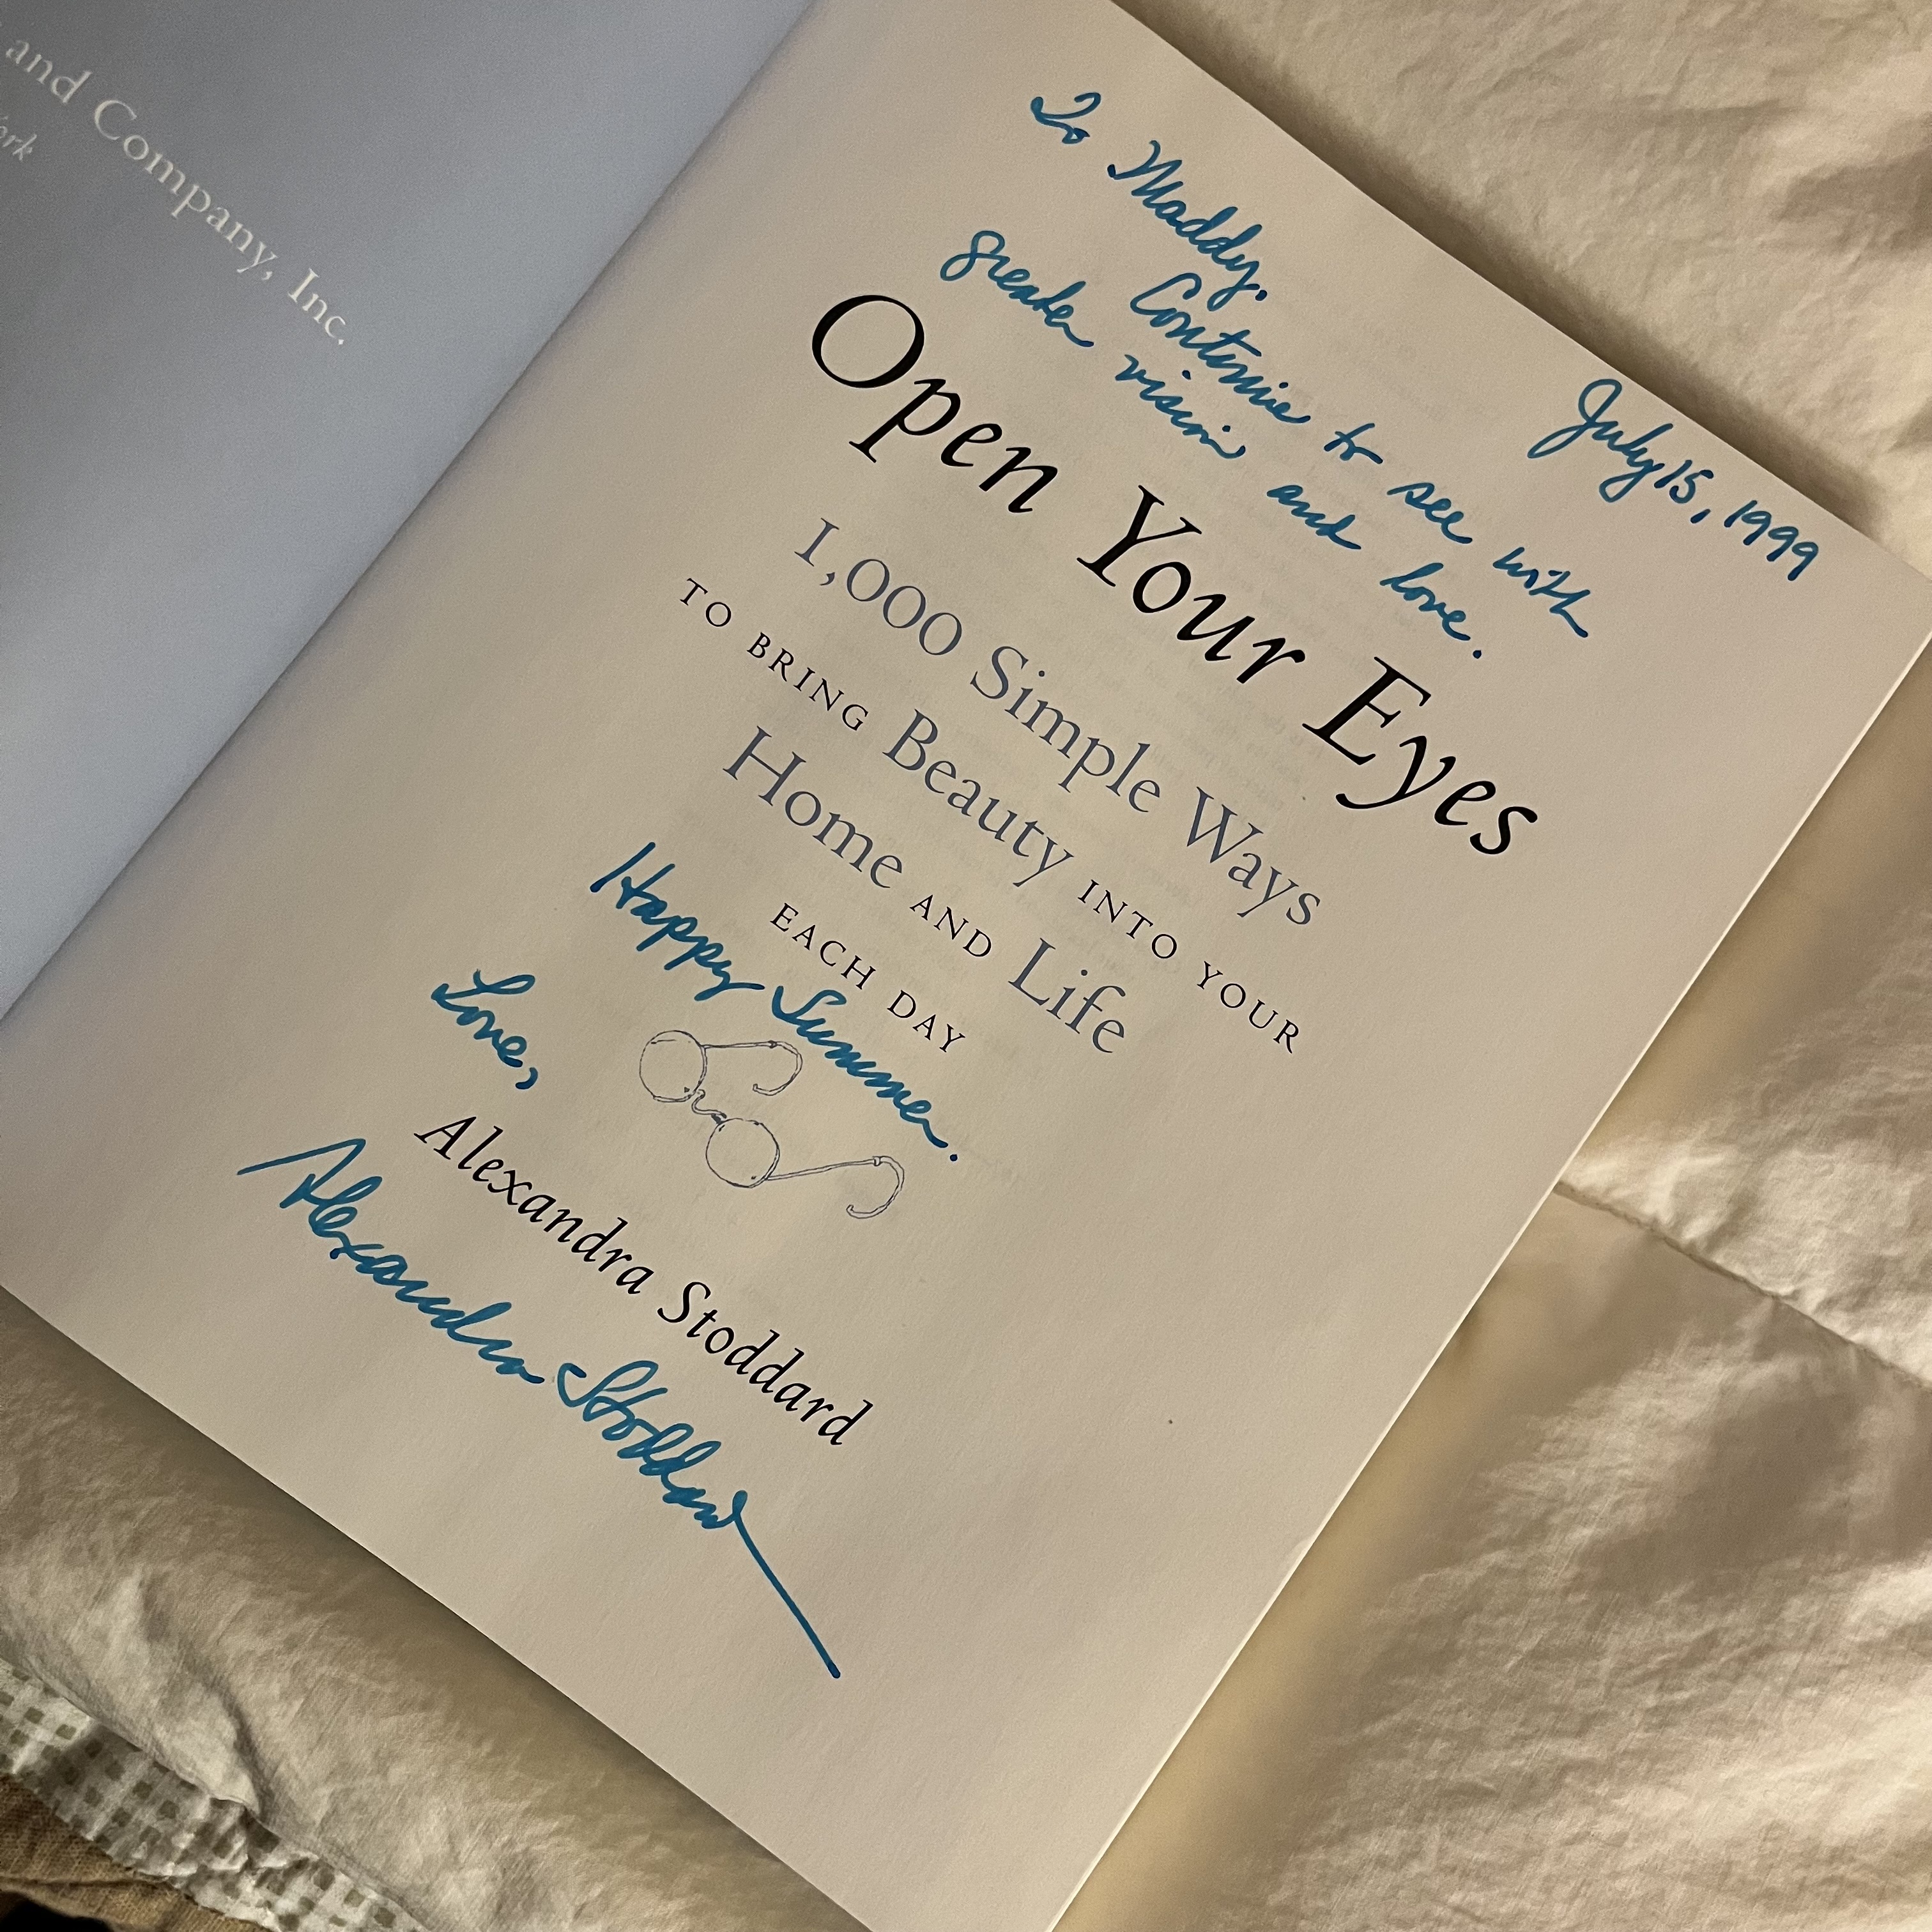 and Company, Inc.
ork
July 15, 1999
To Maddy.
Continue to see with
greater vision and love.
Open Your Eyes
1,000 Simple Ways
TO BRING Beauty INTO YOUR
Home AND Life
EACH DAY
Happy Summer.
Love,
Alexandra Stoddard
Alexandra Stoddard